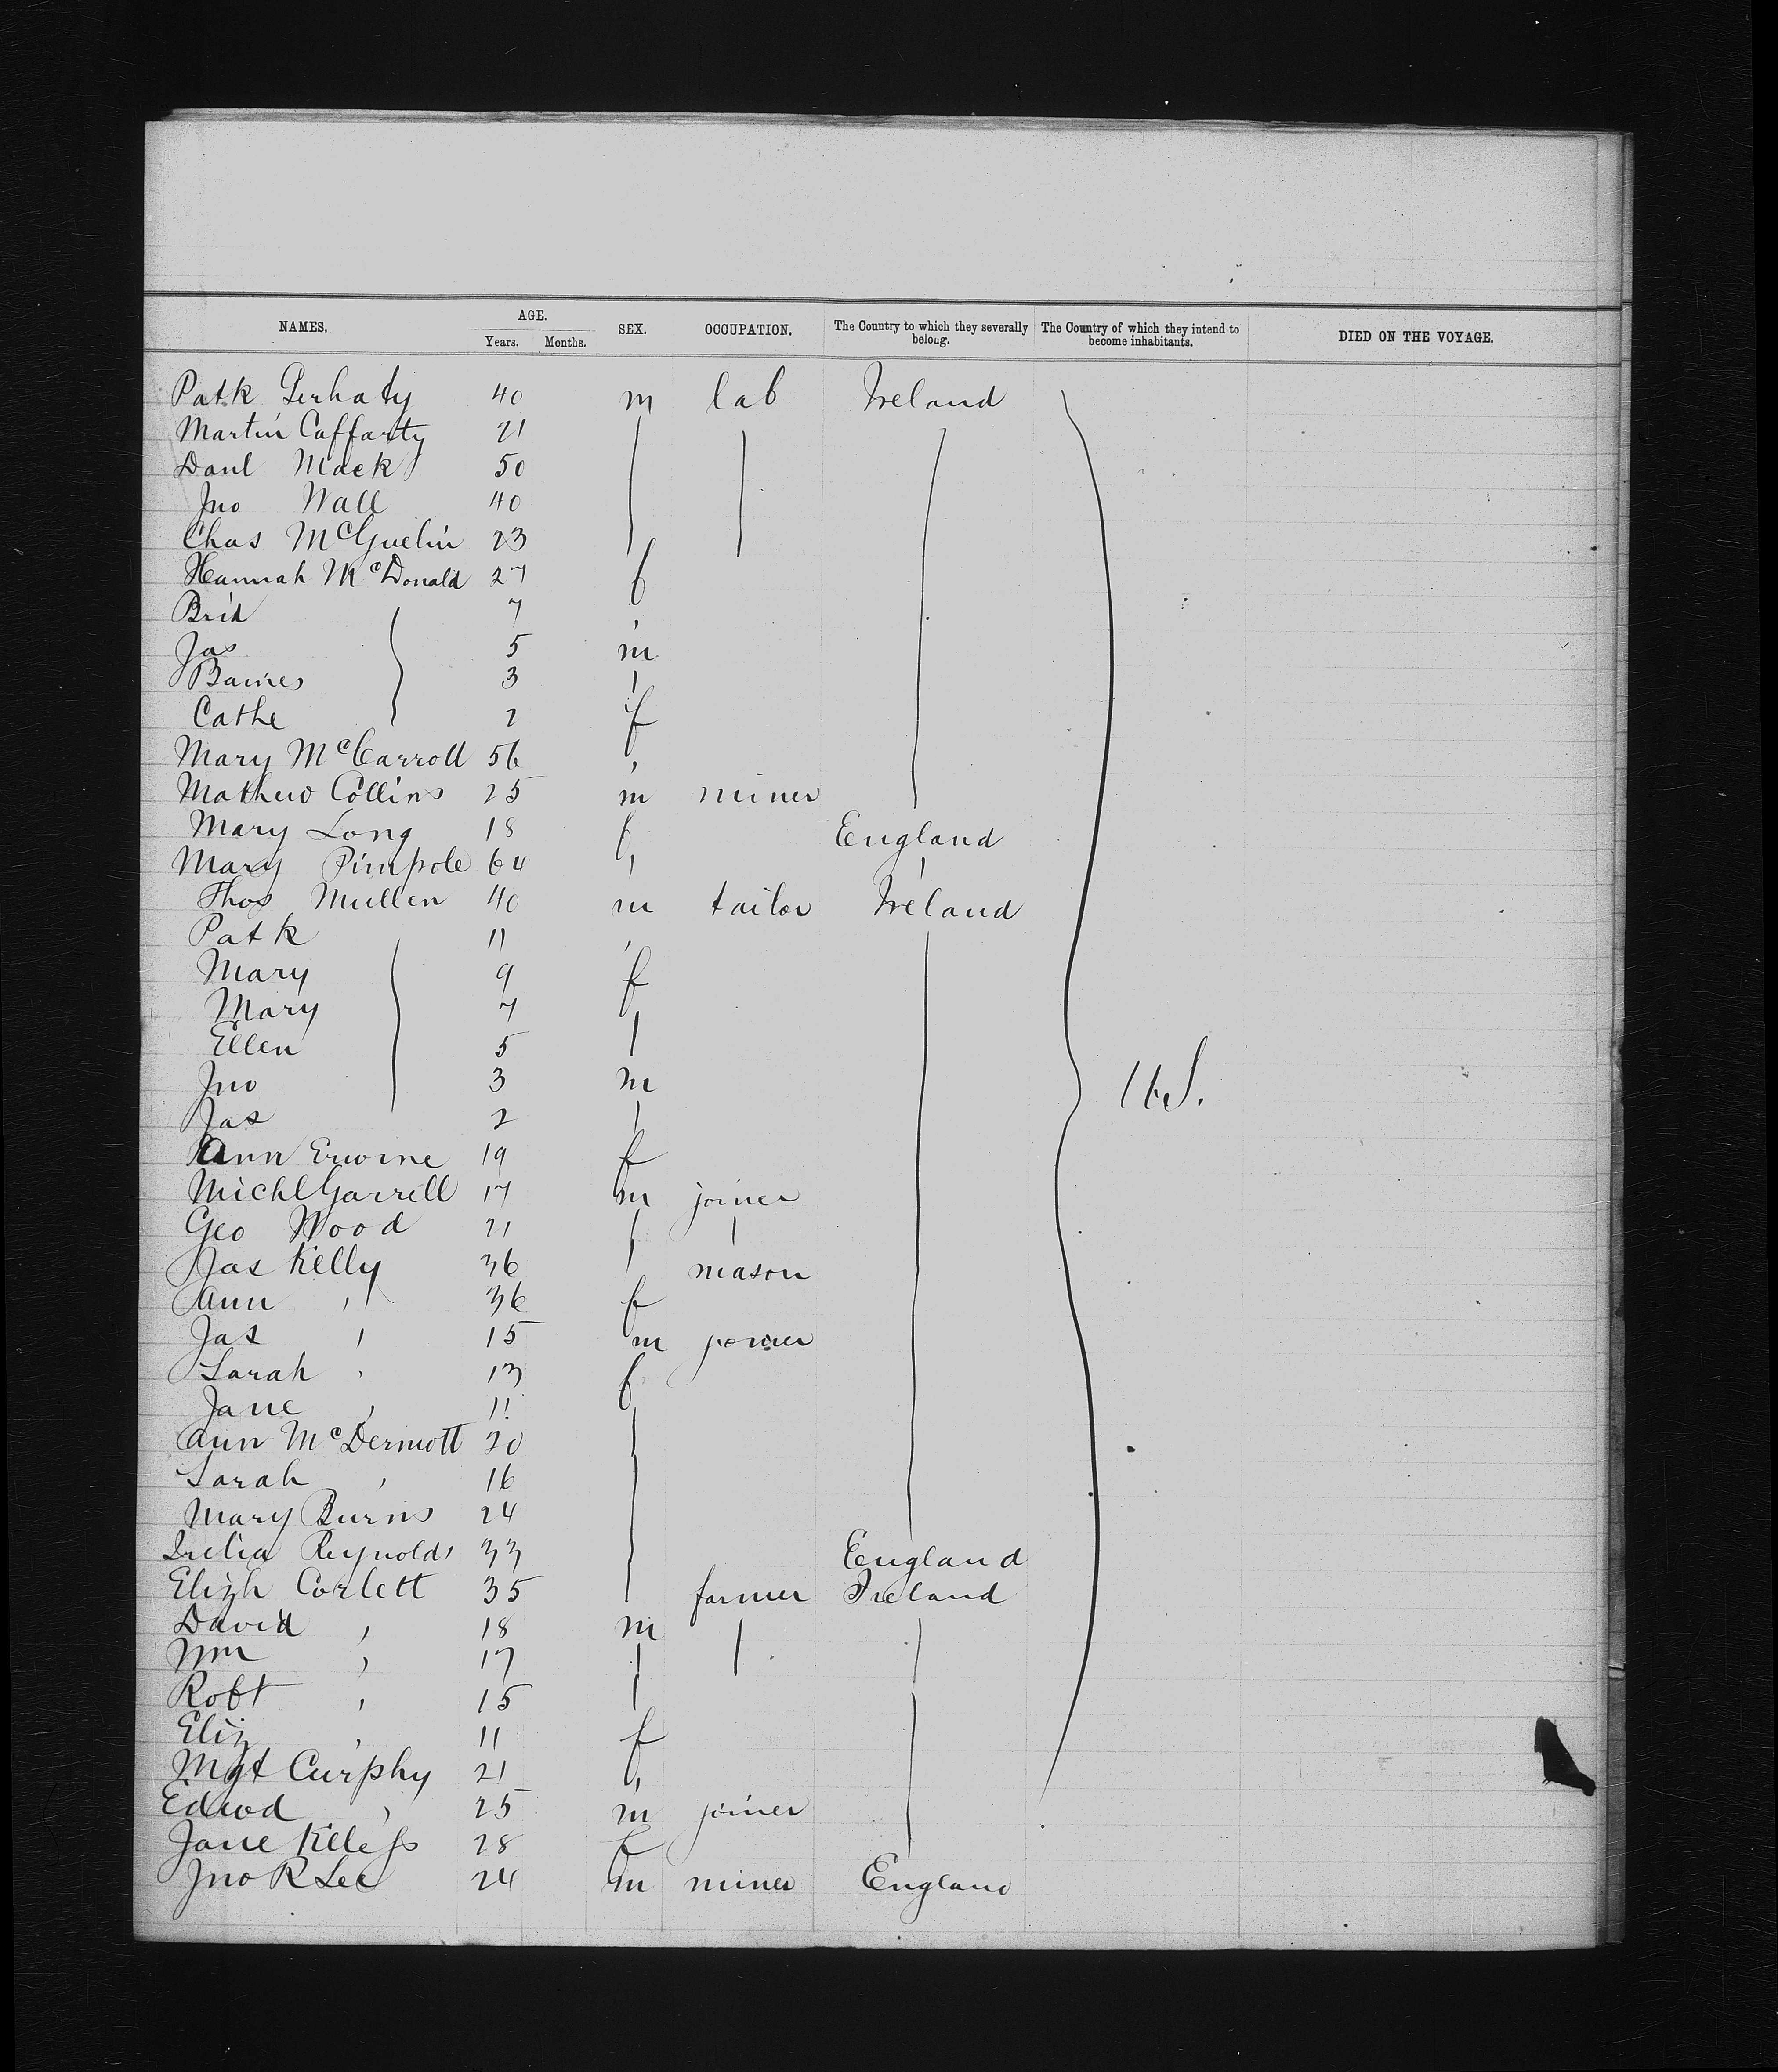 NAMES. AGE. SEX. OCCUPATION. The Country to which they severally belong. The Country of which they intend to become inhabitants. DIED ON THE VOYAGE.
Years. Months.
Patk Gerhaty 40 m lab Ireland
Martin Caffarty 21
Danl Mack 50
Jno Wall 40
Chas McGuelin 23
Hannah McDonald 27 f
Brid 7 "
Jas 5 m
Barnes 3
Cathe 2 f
Mary McCarroll 56 "
Mathew Collins 25 m miner
Mary Long 18 f England
Mary Pimpole 64 " "
Thos Mullen 40 m tailor Ireland
Patk 11 "
Mary 9 f
Mary 7
Ellen 5
Jno 3 m U.S.
Jas 2
Ann Erwine 19 f
Michl Garrell 17 m joiner
Geo Wood 21
Jas Kelly 36 mason
Ann " 36 f
Jas " 15 m joiner
Sarah " 13 f
Jane " 11
Ann McDermott 20
Sarah " 16
Mary Burns 24
Julia Reynolds 33 England
Elizh Corlett 35 farmer Ireland
David " 18 m
Wm " 17
Robt " 15
Eliz " 11 f
Mgt Curphy 21 "
Edwd " 25 m joiner
Jane 28 f
Jno R Lee 24 m miner England